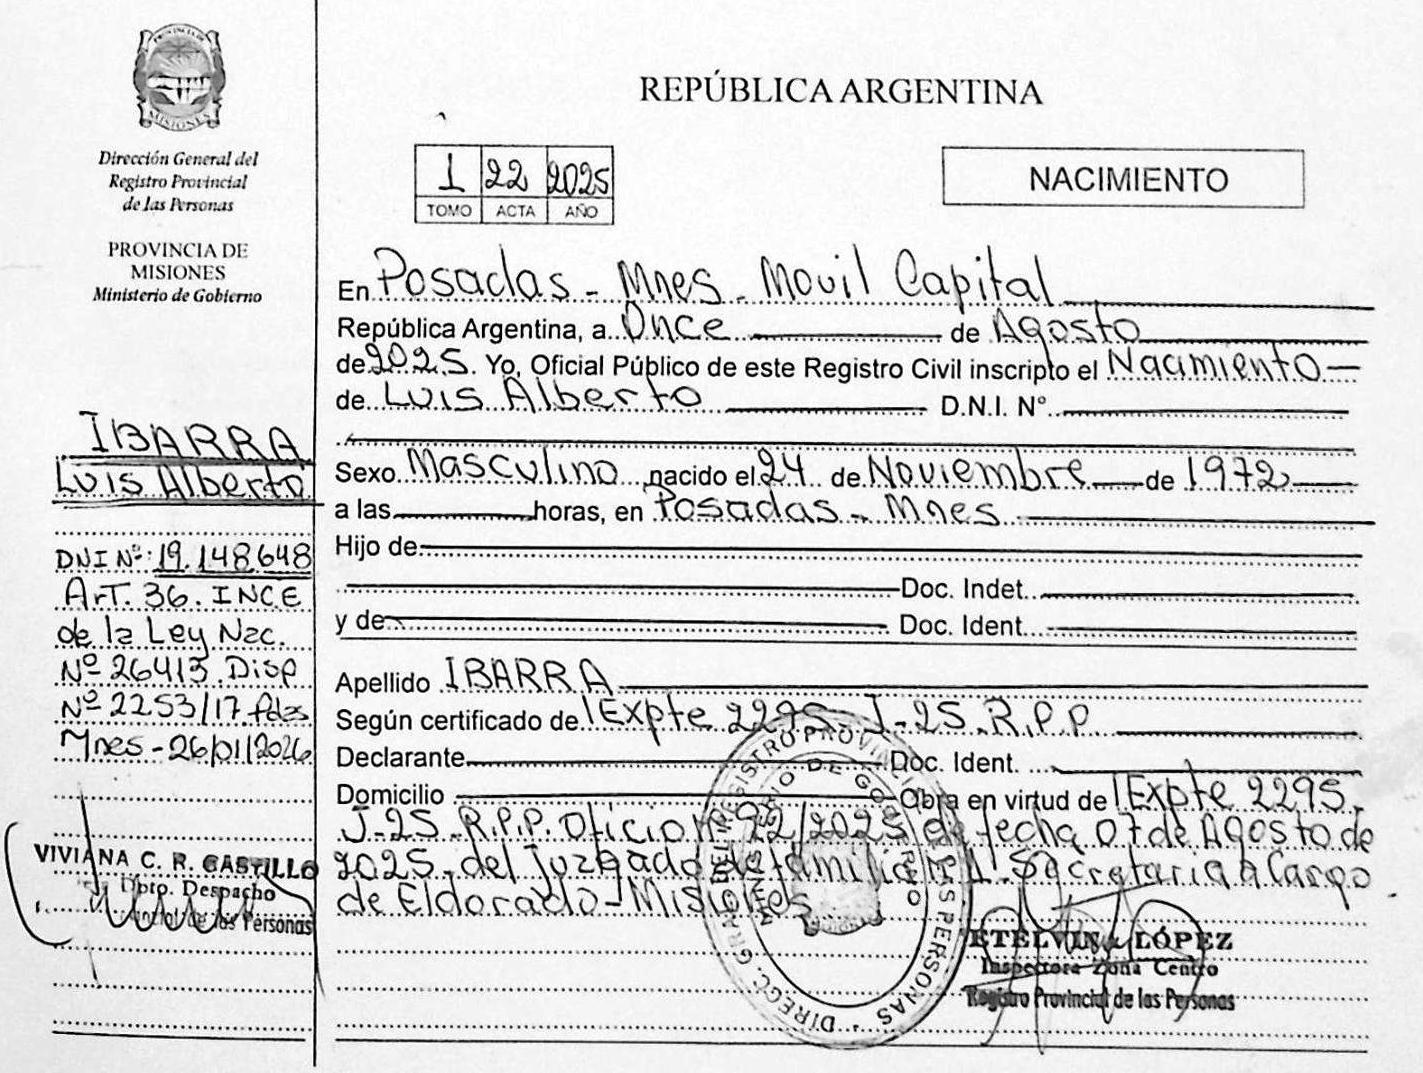 PROVINCIA DE
MISIONES
Dirección General del
Registro Provincial
de las Personas
PROVINCIA DE
MISIONES
Ministerio de Gobierno
IBARRA
Luis Alberto
DNI Nº: 19.148.648
Art. 36. INC E
de la Ley Nac.
Nº 26413. Disp
Nº 2253/17 Pdas
Mnes - 26/01/2026
VIVIANA C. R. CASTILLO
Dpto. Despacho
de las Personas
REPÚBLICA ARGENTINA
1 22 2025
TOMO ACTA AÑO
NACIMIENTO
En Posadas - Mnes - Movil Capital
República Argentina, a Once de Agosto
de 2025. Yo, Oficial Público de este Registro Civil inscripto el Nacimiento
de Luis Alberto D.N.I. N°
Sexo Masculino nacido el 24 de Noviembre de 1972
a las horas, en Posadas - Mnes
Hijo de
Doc. Indet.
y de Doc. Ident.
Apellido IBARRA
Según certificado de Expte 2295-J-25 R.P.P
Declarante Doc. Ident.
Domicilio Obra en virtud de Expte 2295-
J-25 R.P.P. Oficio Nº 92/2025 de fecha 07 de Agosto de
2025 del Juzgado de familia Nº 1 Secretaria a Cargo
de Eldorado - Misiones
DIRECC. GRAL. DEL REGISTRO PROVINCIAL DE LAS PERSONAS
MINISTERIO DE GOBIERNO
ETELVINA LÓPEZ
Inspectora Zona Centro
Registro Provincial de las Personas